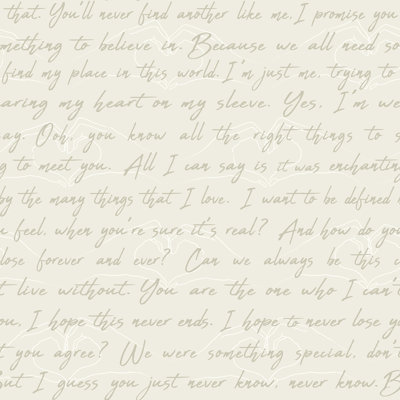 that. You'll never find another like me. I promise you
mething to believe in. Because we all need so
find my place in this world. I'm just me, trying to
aring my heart on my sleeve. Yes, I'm we
ay. Ooh, you know all the right things to s
g to meet you. All I can say is it was enchantin
by the many things that I love. I want to be defined
u feel, when you're sure it's real? And how do you
lose forever and ever? Can we always be this c
t live without. You are the one who I can't
ou, I hope this never ends. I hope to never lose yo
t you agree? We were something special, don't
But I guess you just never know, never know. B